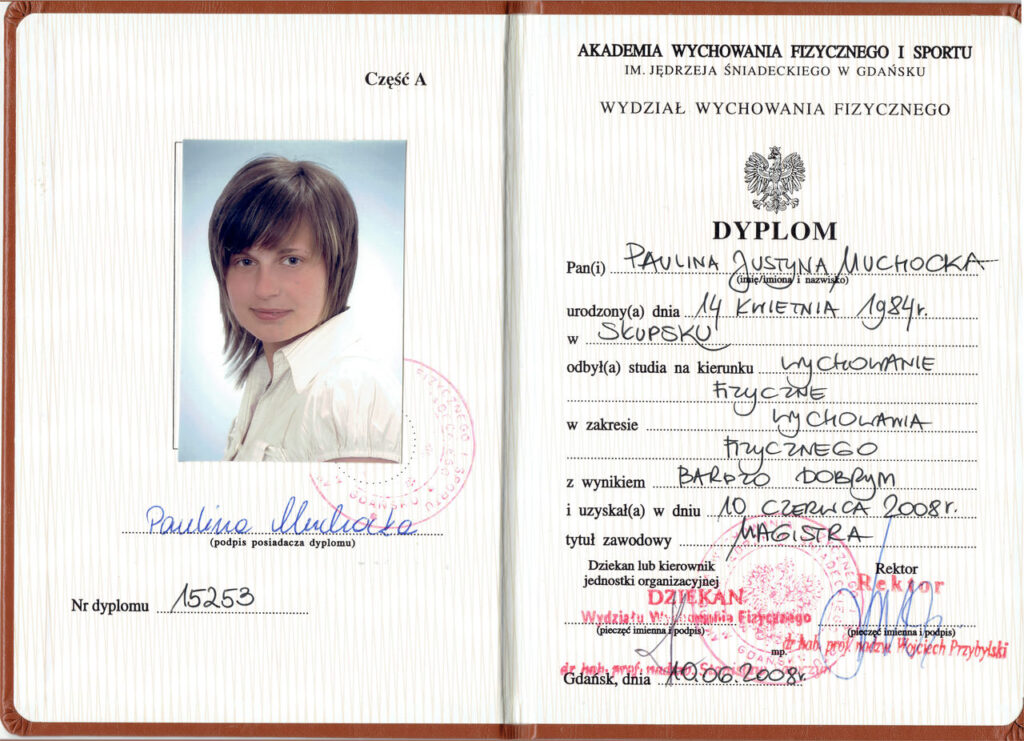 Część A
Paulina Muchocka
(podpis posiadacza dyplomu)
Nr dyplomu 15253
AKADEMIA WYCHOWANIA FIZYCZNEGO I SPORTU
IM. JĘDRZEJA ŚNIADECKIEGO W GDAŃSKU
WYDZIAŁ WYCHOWANIA FIZYCZNEGO
DYPLOM
Pan(i) PAULINA JUSTYNA MUCHOCKA
(imię/imiona i nazwisko)
urodzony(a) dnia 14 KWIETNIA 1984r.
w SŁUPSKU
odbył(a) studia na kierunku WYCHOWANIE
FIZYCZNE
w zakresie WYCHOWANIA
FIZYCZNEGO
z wynikiem BARDZO DOBRYM
i uzyskał(a) w dniu 10 CZERWCA 2008r.
tytuł zawodowy MAGISTRA
Dziekan lub kierownik
jednostki organizacyjnej
Rektor
DZIEKAN
Rektor
Wydziału Wychowania Fizycznego
(pieczęć imienna i podpis)
(pieczęć imienna i podpis)
mp.
dr hab. prof. nadzw. Wojciech Przybylski
dr hab. prof. nadzw.
Gdańsk, dnia 10.06.2008r.